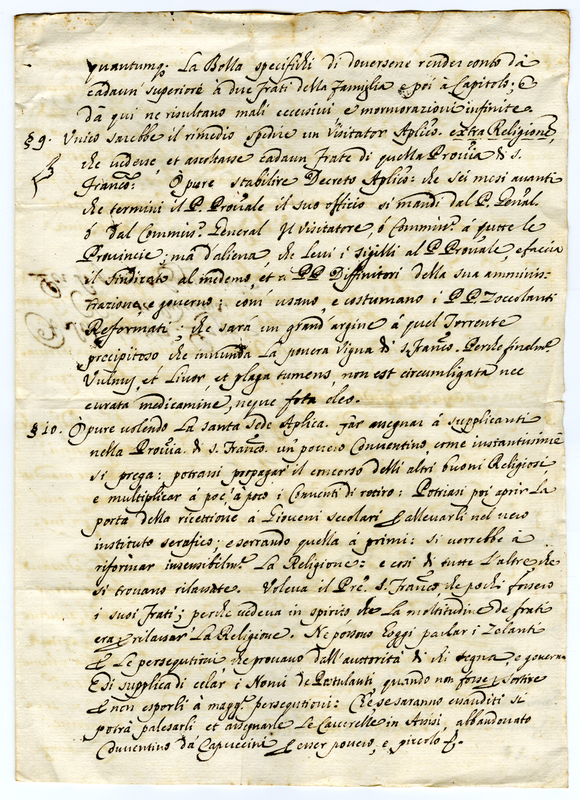 quantumq. La Bolla specifichi di doversene render conto dà
cadaun superiore à due frati della famiglia e poi à Capitolo; e
dà qui ne risultano mali eccessivi e mormorazioni infinite.
§ 9. Unico sarebbe il rimedio spedire un Visitator Aplico. extra Religione,
che vedesse, et ascoltasse cadaun Frate di quella Prou.a di S.
Franco: O pure stabilire Decreto Aplico: che sei mesi avanti
che termini il P. Prou.ale il suo officio si mandi dal P. Gen.al.
ò dal Commiss. General Un Visitatore, ò Commiss. à tutte le
Provincie; mà d'aliena, che Levi i sigilli al P. Prou.ale, e faccia
il sindicato al medemo, et a PP Diffinitori della sua amminis-
trazione, e governo; com' usano, e costumano i PP. Zoccolanti
Reformati; che sarà un grand'argine à quel Torrente
precipitoso che innunda La povera Vigna di S. Franco. Perche finalm.
Vulnus, et Livor, et plaga tumens, non est circumligata nec
curata medicamine, neque fota oleo.
§ 10. O pure volendo La santa Sede Aplica. far assegnar à supplicanti
nella Prou.a di S. Franco. un povero Conventino come instantissime
si prega: potrassi propagar il concorso delli altri buoni Religiosi
e multiplicar à poc' à poco i Conventi di retiro: Potriasi poi aprir La
porta della ricettione à Gioveni secolari p allevarli nel vero
instituto serafico; e serrando quella à primi: si verrebbe à
riformar insensibilm. La Religione: e così di tutte L'altre, che
si trovano rilassate. Voleva il Pre. S. Franco. che pochi fossero
i suoi Frati; perche vedeva in spirito che La moltitudine de frati
era p rilassar La Religione. Ne possono hoggi parlar i Zelanti
p Le persequtioni che provano dall'autorità di chi regna, e governa
E si supplica di celar i Nomi de Postulanti quando non forse p sortire
p non esporli à magg. persequtioni: Che se saranno exauditi si
potrà palesarli et assegnarle Le Carcerelle in Assisi, abbandonato
Conventino dà Capuccini p esser povero, e picciolo